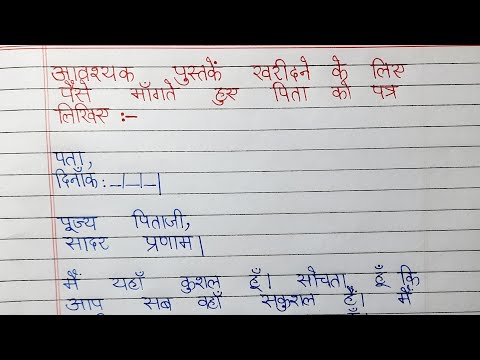 आवश्यक पुस्तकें खरीदने के लिस
पैसे माँगते हुस पिता को पत्र
लिखिस :–
पता,
दिनाँक:–/–/–/
पूज्य पिताजी,
सादर प्रणाम।
मैं यहाँ कुशल हूँ। सोचता हूँ कि
आप सब वहाँ सकुशल हैं। मैं